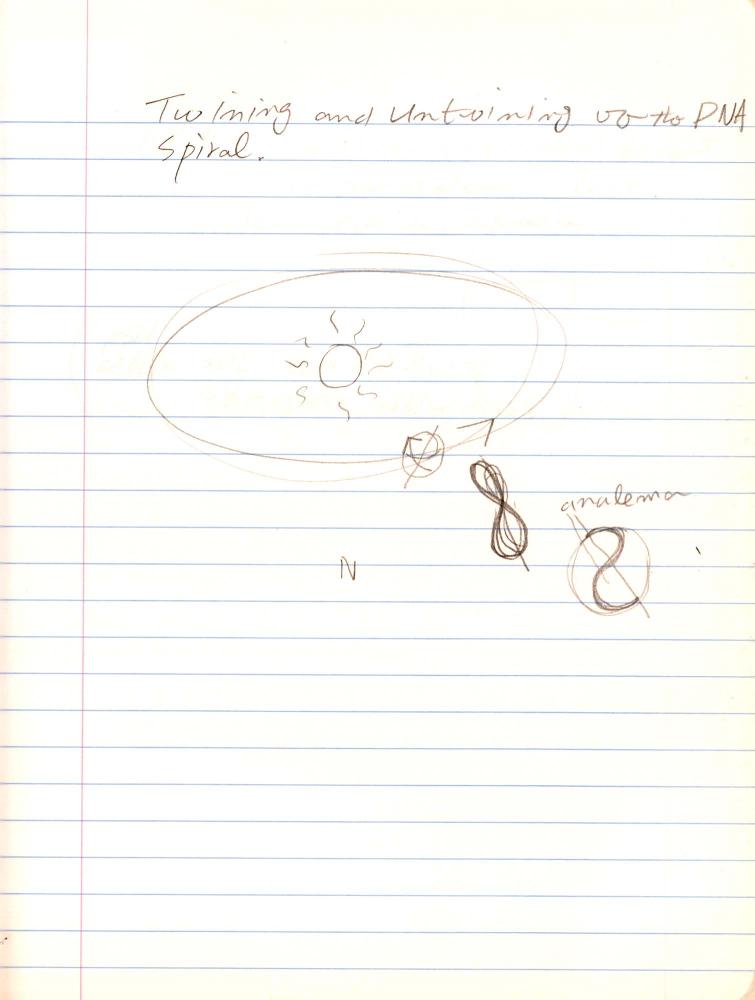 Twining and Untwining of the DNA
Spiral.
analema
N